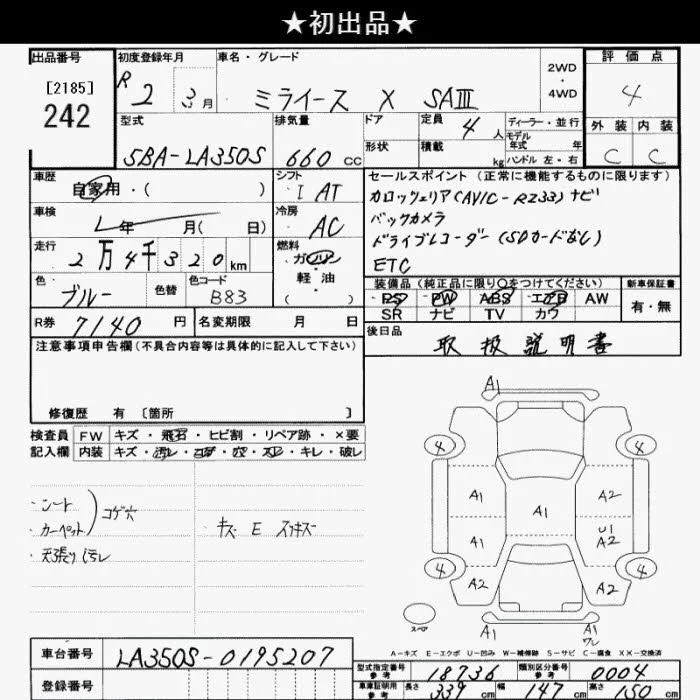 ★初出品★
出品番号
[2185]
242
初度登録年月
R 2 3月
車名・グレード
ミライース X SAⅢ
2WD
・
4WD
評価点
4
外装 内装
C C
型式
5BA-LA350S
排気量
660 CC
ドア
形状
定員
4 人
積載
kg
ディーラー・並行
モデル
年式 年
ハンドル 左・右
車歴
自家用・( )
シフト
I AT
車検
年 月( 日)
冷房
AC
走行
2万4千320 km
燃料
ガソリン
軽・油
( )
色
ブルー
色替
色コード
B83
R券 7140 円
名変期限 月 日
セールスポイント(正常に機能するものに限ります)
カロッツェリア(AVIC-RZ33)ナビ
バックカメラ
ドライブレコーダー(SDカードなし)
ETC
装備品(純正品に限り○をつけてください)
PS PW ABS エアB AW
SR ナビ TV カワ
新車保証書
有・無
後日品
取扱説明書
注意事項申告欄(不具合内容等は具体的に記入して下さい)
修復歴 有〔箇所 〕
検査員
記入欄
FW キズ・飛石・ヒビ割・リペア跡・×要
内装 キズ・汚レ・コゲ・穴・スレ・キレ・破レ
・シート
・カーペット
コゲ穴
・天張りヨゴレ
・キズ E スリキズ
A1
4 4
A1 A1 A2
A1 U1
A2
4 4
A2 A2
A1 A1
ワレ
スペア
A-キズ E-エクボ U-凹み W-補修跡 S-サビ C-腐食 XX-交換済
車台番号
LA350S-0195207
登録番号
型式指定番号
参考
18736
類別区分番号
参考
0004
車庫証明用
参考
長さ 339 cm 幅 147 cm 高さ 150 cm